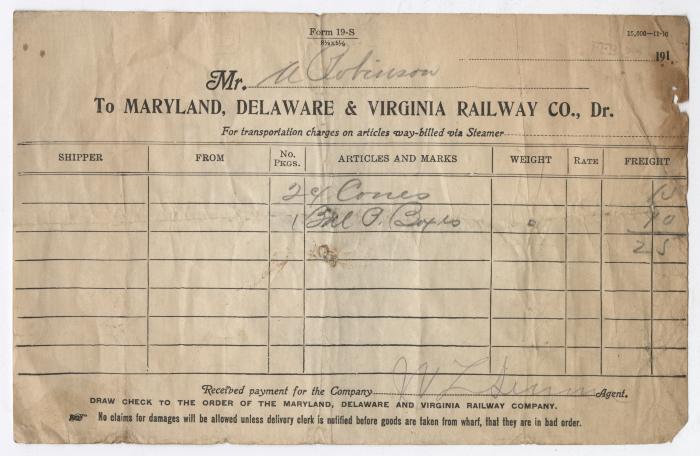 Form 19-S
8½x5½
15,000—11-16
191
Mr. A Robinson
To MARYLAND, DELAWARE & VIRGINIA RAILWAY CO., Dr.
For transportation charges on articles way-billed via Steamer
SHIPPER FROM No. Pkgs. ARTICLES AND MARKS WEIGHT RATE FREIGHT
24 Cones
1 Bdl P. Boxes
25
Received payment for the Company W L Agent.
DRAW CHECK TO THE ORDER OF THE MARYLAND, DELAWARE AND VIRGINIA RAILWAY COMPANY.
No claims for damages will be allowed unless delivery clerk is notified before goods are taken from wharf, that they are in bad order.